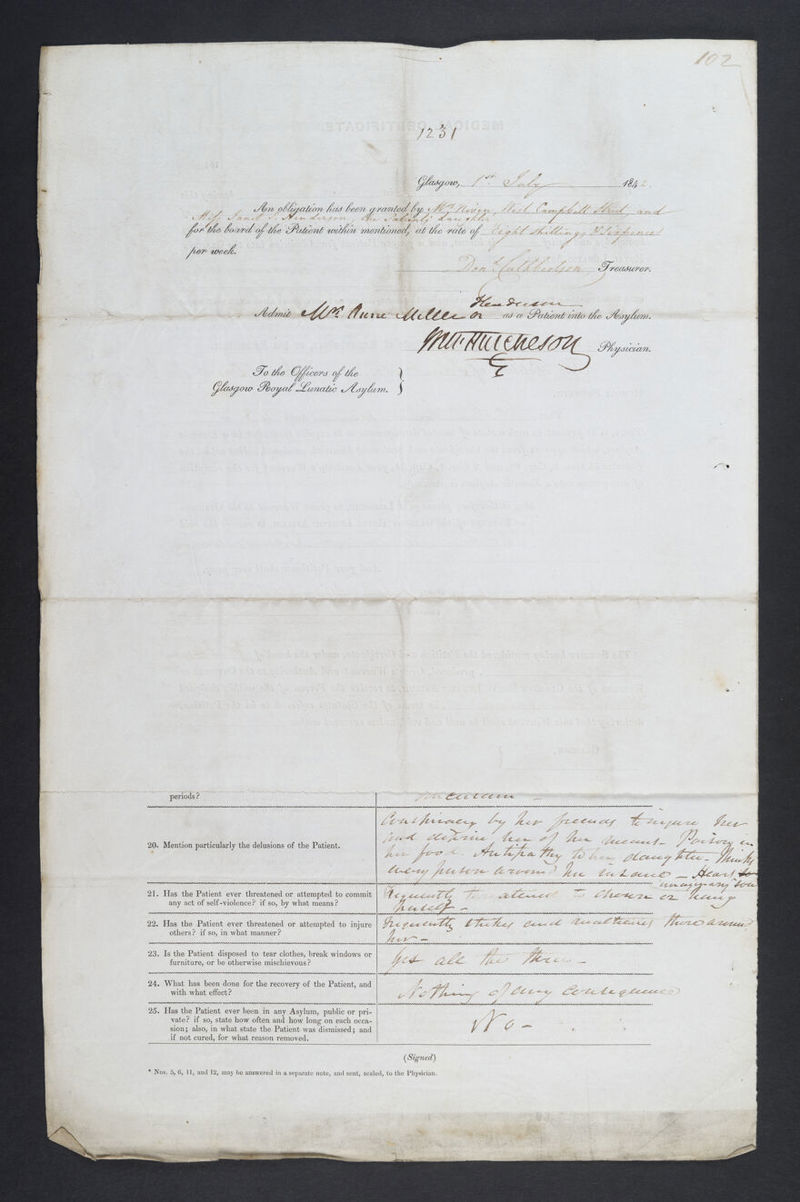 102
1231
Glasgow, 1st July 1842.
An obligation has been granted by Mr. West Campbell Street, and
Miss Janet Henderson, the Patient's daughter
for the board of the Patient within mentioned, at the rate of Eight shillings & Sixpence
per week.
Don. Cuthbertson Treasurer.
Henderson
Admit Mrs. Anne Miller or as a Patient into the Asylum.
Wm Hutcheson Physician.
To the Officers of the
Glasgow Royal Lunatic Asylum. }
periods?
20. Mention particularly the delusions of the Patient.
Conspiracy by her friends to injure her
and deprive her of her means - Poison in
her food. Antipathy to her daughter - Thinks
every person around her insane - Hears
imaginary
21. Has the Patient ever threatened or attempted to commit
any act of self-violence? if so, by what means?
Frequently to or hang
herself -
22. Has the Patient ever threatened or attempted to injure
others? if so, in what manner?
Frequently strikes and those around
her -
23. Is the Patient disposed to tear clothes, break windows or
furniture, or be otherwise mischievous?
Yes all the three -
24. What has been done for the recovery of the Patient, and
with what effect?
Nothing of any consequence
25. Has the Patient ever been in any Asylum, public or pri-
vate? if so, state how often and how long on each occa-
sion; also, in what state the Patient was dismissed; and
if not cured, for what reason removed.
No -
(Signed)
* Nos. 5, 6, 11, and 12, may be answered in a separate note, and sent, sealed, to the Physician.